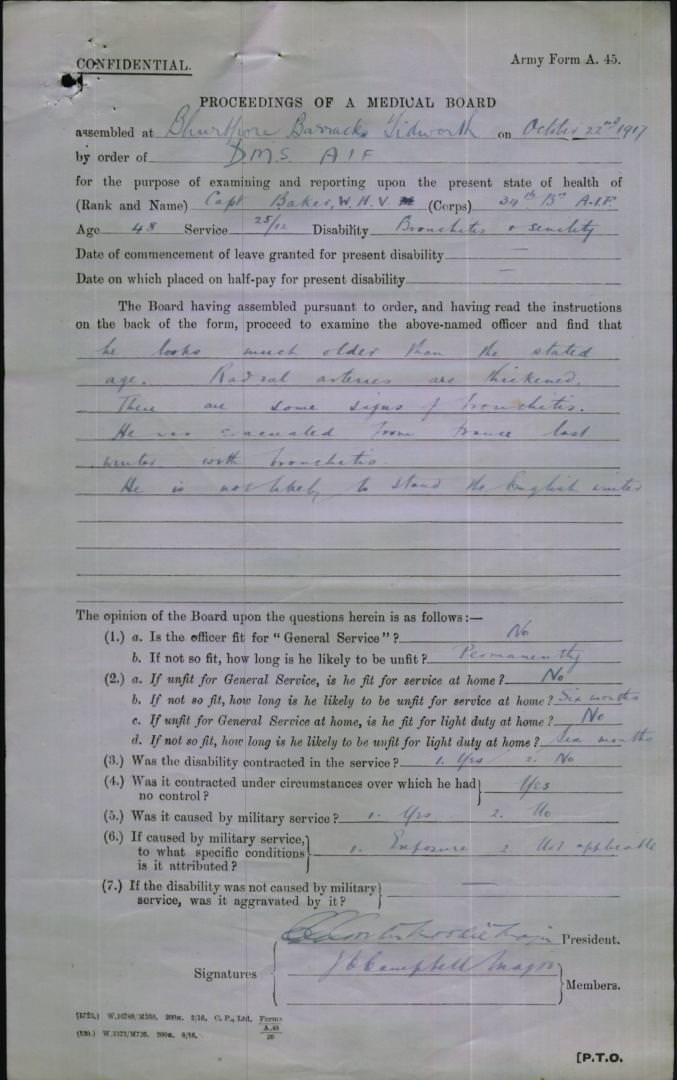 CONFIDENTIAL.
Army Form A. 45.
PROCEEDINGS OF A MEDICAL BOARD
assembled at Bhurtpore Barracks Tidworth on October 22nd 1917
by order of DMS AIF
for the purpose of examining and reporting upon the present state of health of
(Rank and Name) Capt Baker, W. H. V. (Corps) 34th Bn A.I.F.
Age 48 Service 25/12 Disability Bronchitis & senility
Date of commencement of leave granted for present disability —
Date on which placed on half-pay for present disability —
The Board having assembled pursuant to order, and having read the instructions
on the back of the form, proceed to examine the above-named officer and find that
he looks much older than the stated
age. Radial arteries are thickened.
There are some signs of bronchitis.
He was evacuated from France last
winter with bronchitis.
He is not likely to stand the English winter
The opinion of the Board upon the questions herein is as follows:—
(1.) a. Is the officer fit for "General Service"? No
b. If not so fit, how long is he likely to be unfit? Permanently
(2.) a. If unfit for General Service, is he fit for service at home? No
b. If not so fit, how long is he likely to be unfit for service at home? Six months
c. If unfit for General Service at home, is he fit for light duty at home? No
d. If not so fit, how long is he likely to be unfit for light duty at home? Six months
(3.) Was the disability contracted in the service? 1. Yes 2. No
(4.) Was it contracted under circumstances over which he had
no control? Yes
(5.) Was it caused by military service? 1. Yes 2. No
(6.) If caused by military service,
to what specific conditions
is it attributed? 1. Exposure 2. Not applicable
(7.) If the disability was not caused by military
service, was it aggravated by it? —
Major President.
Signatures
J C Campbell Major
Members.
200m. 2/16. C. P., Ltd. Forms
A.45
20
200m. 8/16.
[P.T.O.